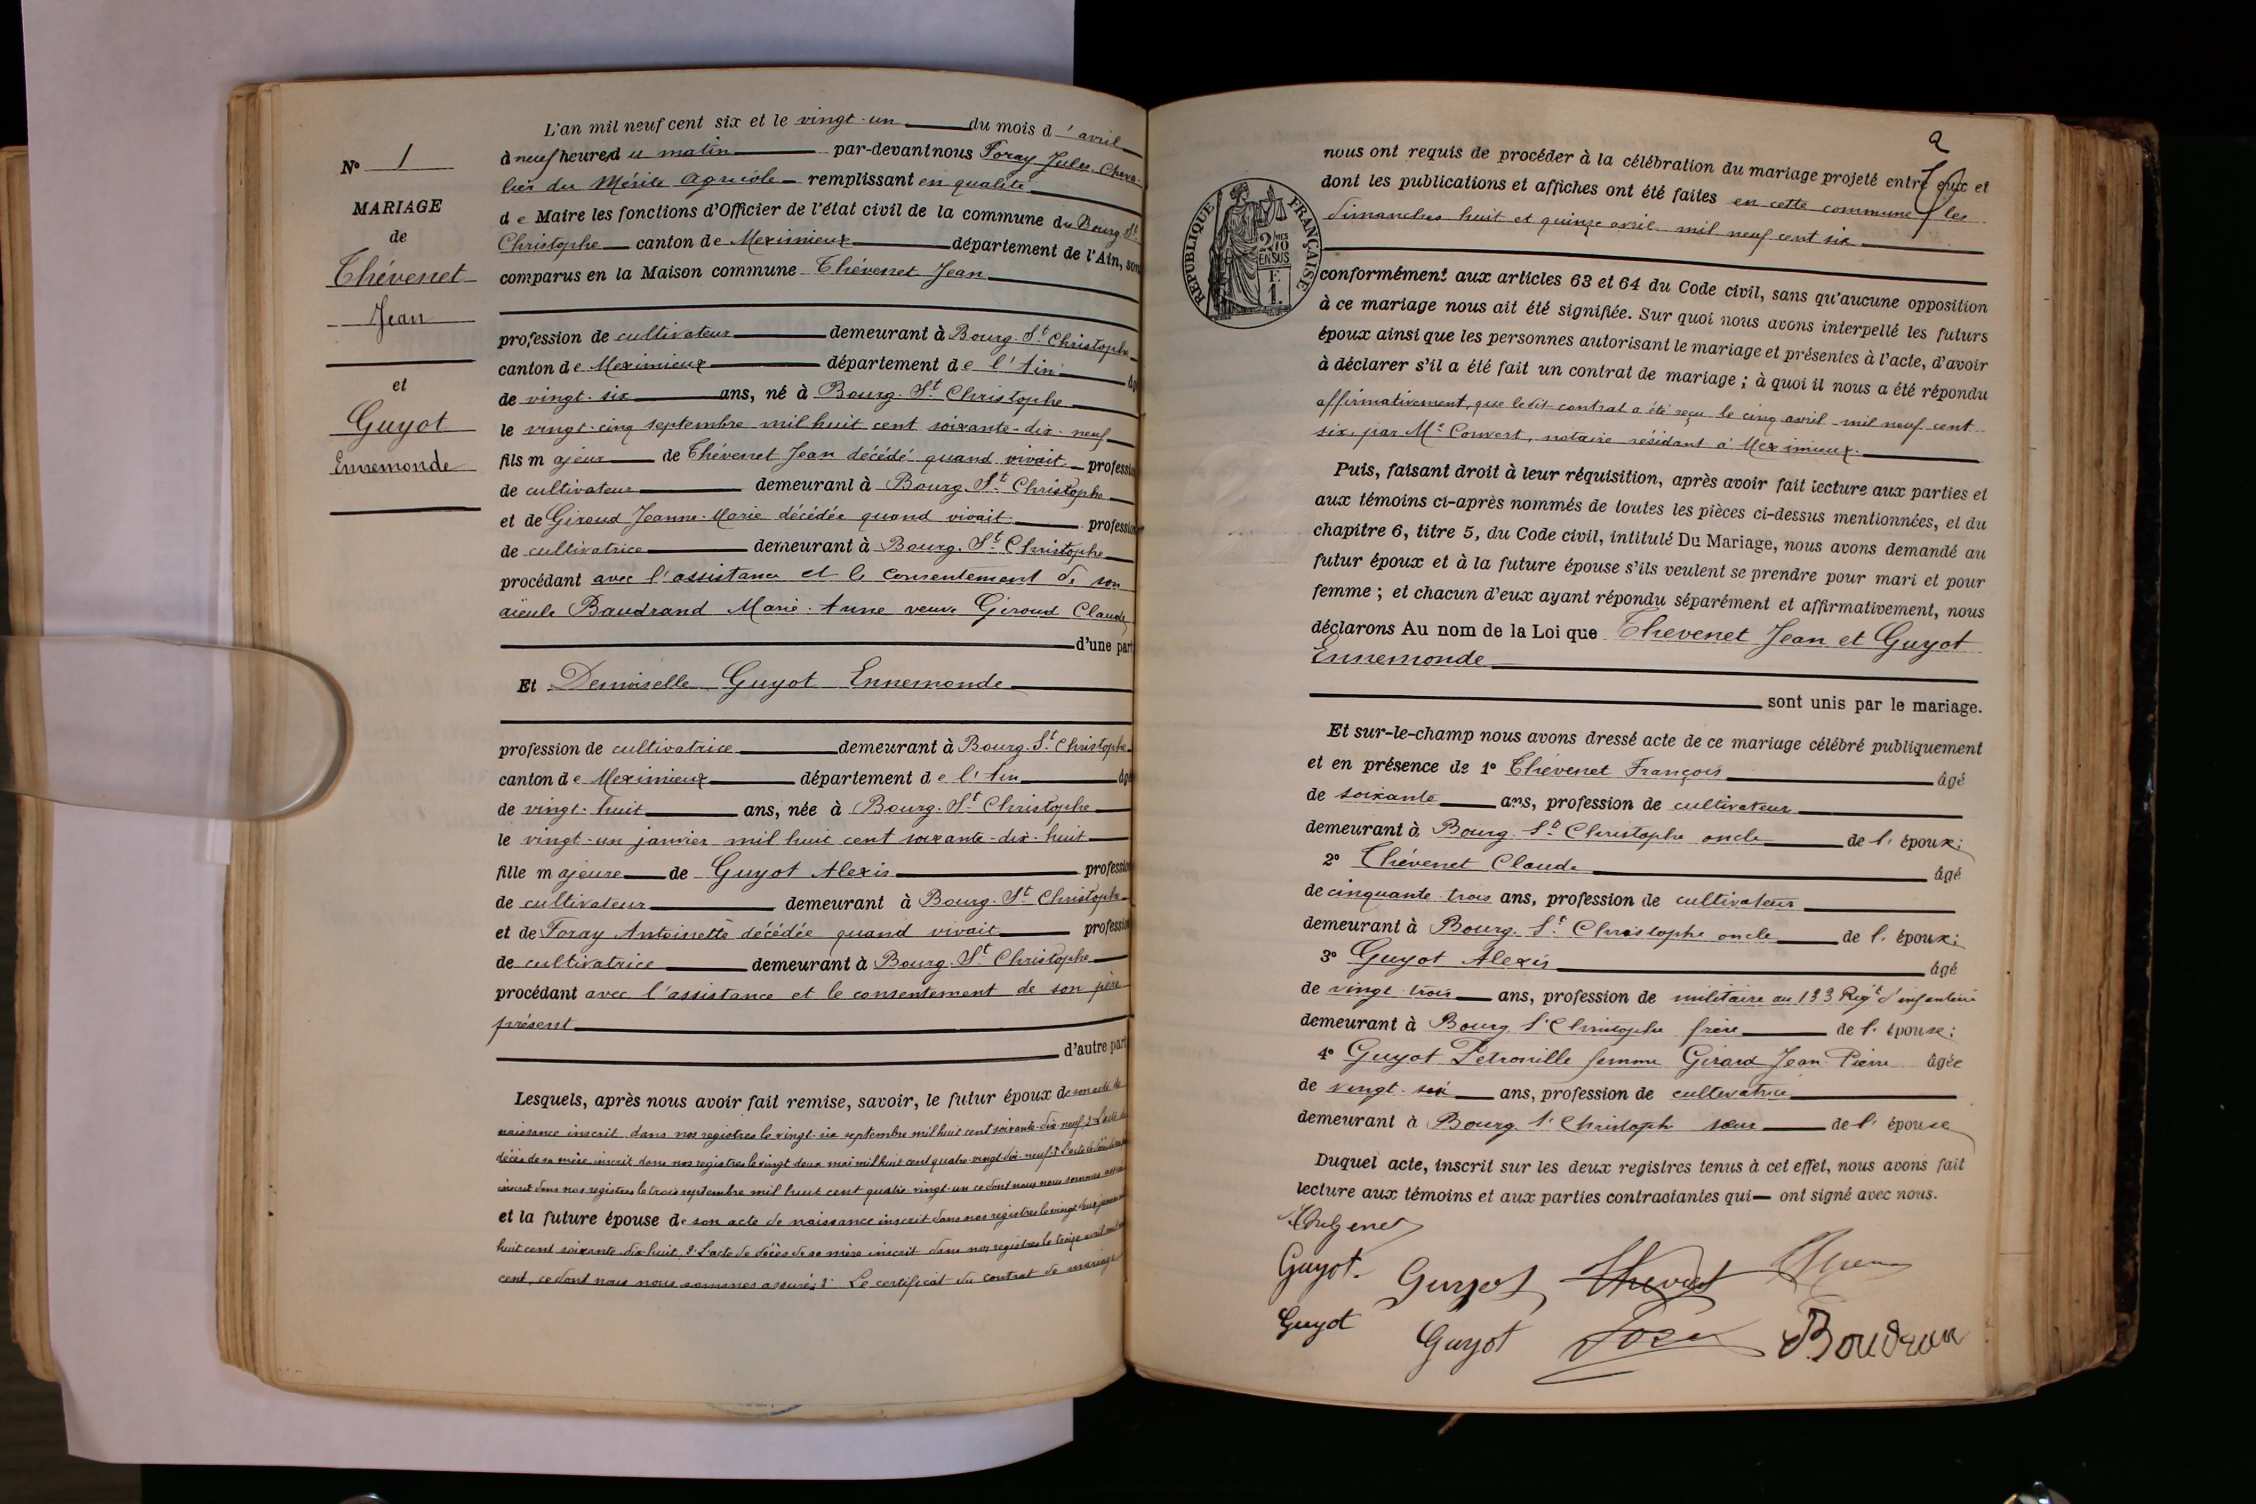 N° 1
MARIAGE
de
Thévenet
Jean
et
Guyot
Ennemonde
L'an mil neuf cent six et le vingt-un du mois d'avril
à neuf heures du matin par-devant nous Foray Jules, Cheva-
lier du Mérite Agricole remplissant en qualité
de Maire les fonctions d'Officier de l'état civil de la commune du Bourg St
Christophe canton de Meximieux département de l'Ain, sont
comparus en la Maison commune Thévenet Jean
profession de cultivateur demeurant à Bourg-St Christophe
canton de Meximieux département de l'Ain âgé
de vingt-six ans, né à Bourg-St Christophe
le vingt-cinq septembre mil huit cent soixante-dix-neuf
fils majeur de Thévenet Jean décédé quand vivait profession
de cultivateur demeurant à Bourg-St Christophe
et de Giroud Jeanne-Marie décédée quand vivait profession
de cultivatrice demeurant à Bourg-St Christophe
procédant avec l'assistance et le consentement de son
aïeule Baudrand Marie-Anne veuve Giroud Claude
d'une part
Et Demoiselle Guyot Ennemonde
profession de cultivatrice demeurant à Bourg-St Christophe
canton de Meximieux département de l'Ain âgé
de vingt-huit ans, née à Bourg-St Christophe
le vingt-un janvier mil huit cent soixante-dix-huit
fille majeure de Guyot Alexis profession
de cultivateur demeurant à Bourg-St Christophe
et de Foray Antoinette décédée quand vivait profession
de cultivatrice demeurant à Bourg-St Christophe
procédant avec l'assistance et le consentement de son père
présent
d'autre part
Lesquels, après nous avoir fait remise, savoir, le futur époux de son acte de
naissance inscrit dans nos registres le vingt-six septembre mil huit cent soixante-dix-neuf, 2° L'acte de
décès de sa mère inscrit dans nos registres le vingt-deux mai mil huit cent quatre-vingt-dix-neuf 3° L'acte de
inscrit dans nos registres le trois septembre mil huit cent quatre-vingt-un ce dont nous nous sommes
et la future épouse de son acte de naissance inscrit dans nos registres le vingt-deux
huit cent soixante-dix-huit, 2° L'acte de décès de sa mère inscrit dans nos registres le treize avril
cent, ce dont nous nous sommes assurés 3° Le certificat du contrat de mariage
2
nous ont requis de procéder à la célébration du mariage projeté entre eux et
dont les publications et affiches ont été faites en cette commune les
dimanches huit et quinze avril mil neuf cent six
RÉPUBLIQUE FRANÇAISE
2 MES
10
EN SUS
F.
1.
conformément aux articles 63 et 64 du Code civil, sans qu'aucune opposition
à ce mariage nous ait été signifiée. Sur quoi nous avons interpellé les futurs
époux ainsi que les personnes autorisant le mariage et présentes à l'acte, d'avoir
à déclarer s'il a été fait un contrat de mariage ; à quoi il nous a été répondu
affirmativement, que ledit contrat a été reçu le cinq avril mil neuf cent
six, par Me Convert, notaire résidant à Meximieux.
Puis, faisant droit à leur réquisition, après avoir fait lecture aux parties et
aux témoins ci-après nommés de toutes les pièces ci-dessus mentionnées, et du
chapitre 6, titre 5, du Code civil, intitulé Du Mariage, nous avons demandé au
futur époux et à la future épouse s'ils veulent se prendre pour mari et pour
femme ; et chacun d'eux ayant répondu séparément et affirmativement, nous
déclarons Au nom de la Loi que Thevenet Jean et Guyot
Ennemonde
sont unis par le mariage.
Et sur-le-champ nous avons dressé acte de ce mariage célébré publiquement
et en présence de 1° Thévenet François âgé
de soixante ans, profession de cultivateur
demeurant à Bourg-St Christophe oncle de l'époux;
2° Thévenet Claude âgé
de cinquante-trois ans, profession de cultivateur
demeurant à Bourg-St Christophe oncle de l'époux;
3° Guyot Alexis âgé
de vingt-trois ans, profession de militaire au 133 Regt d'infanterie
demeurant à Bourg St Christophe frère de l'épouse;
4° Guyot Pétronille femme Girard Jean-Pierre âgée
de vingt-six ans, profession de cultivatrice
demeurant à Bourg St Christophe sœur de l'épouse
Duquel acte, inscrit sur les deux registres tenus à cet effet, nous avons fait
lecture aux témoins et aux parties contractantes qui ont signé avec nous.
Guyot. Guyot Thevenet
Guyot Guyot Foray Boudran